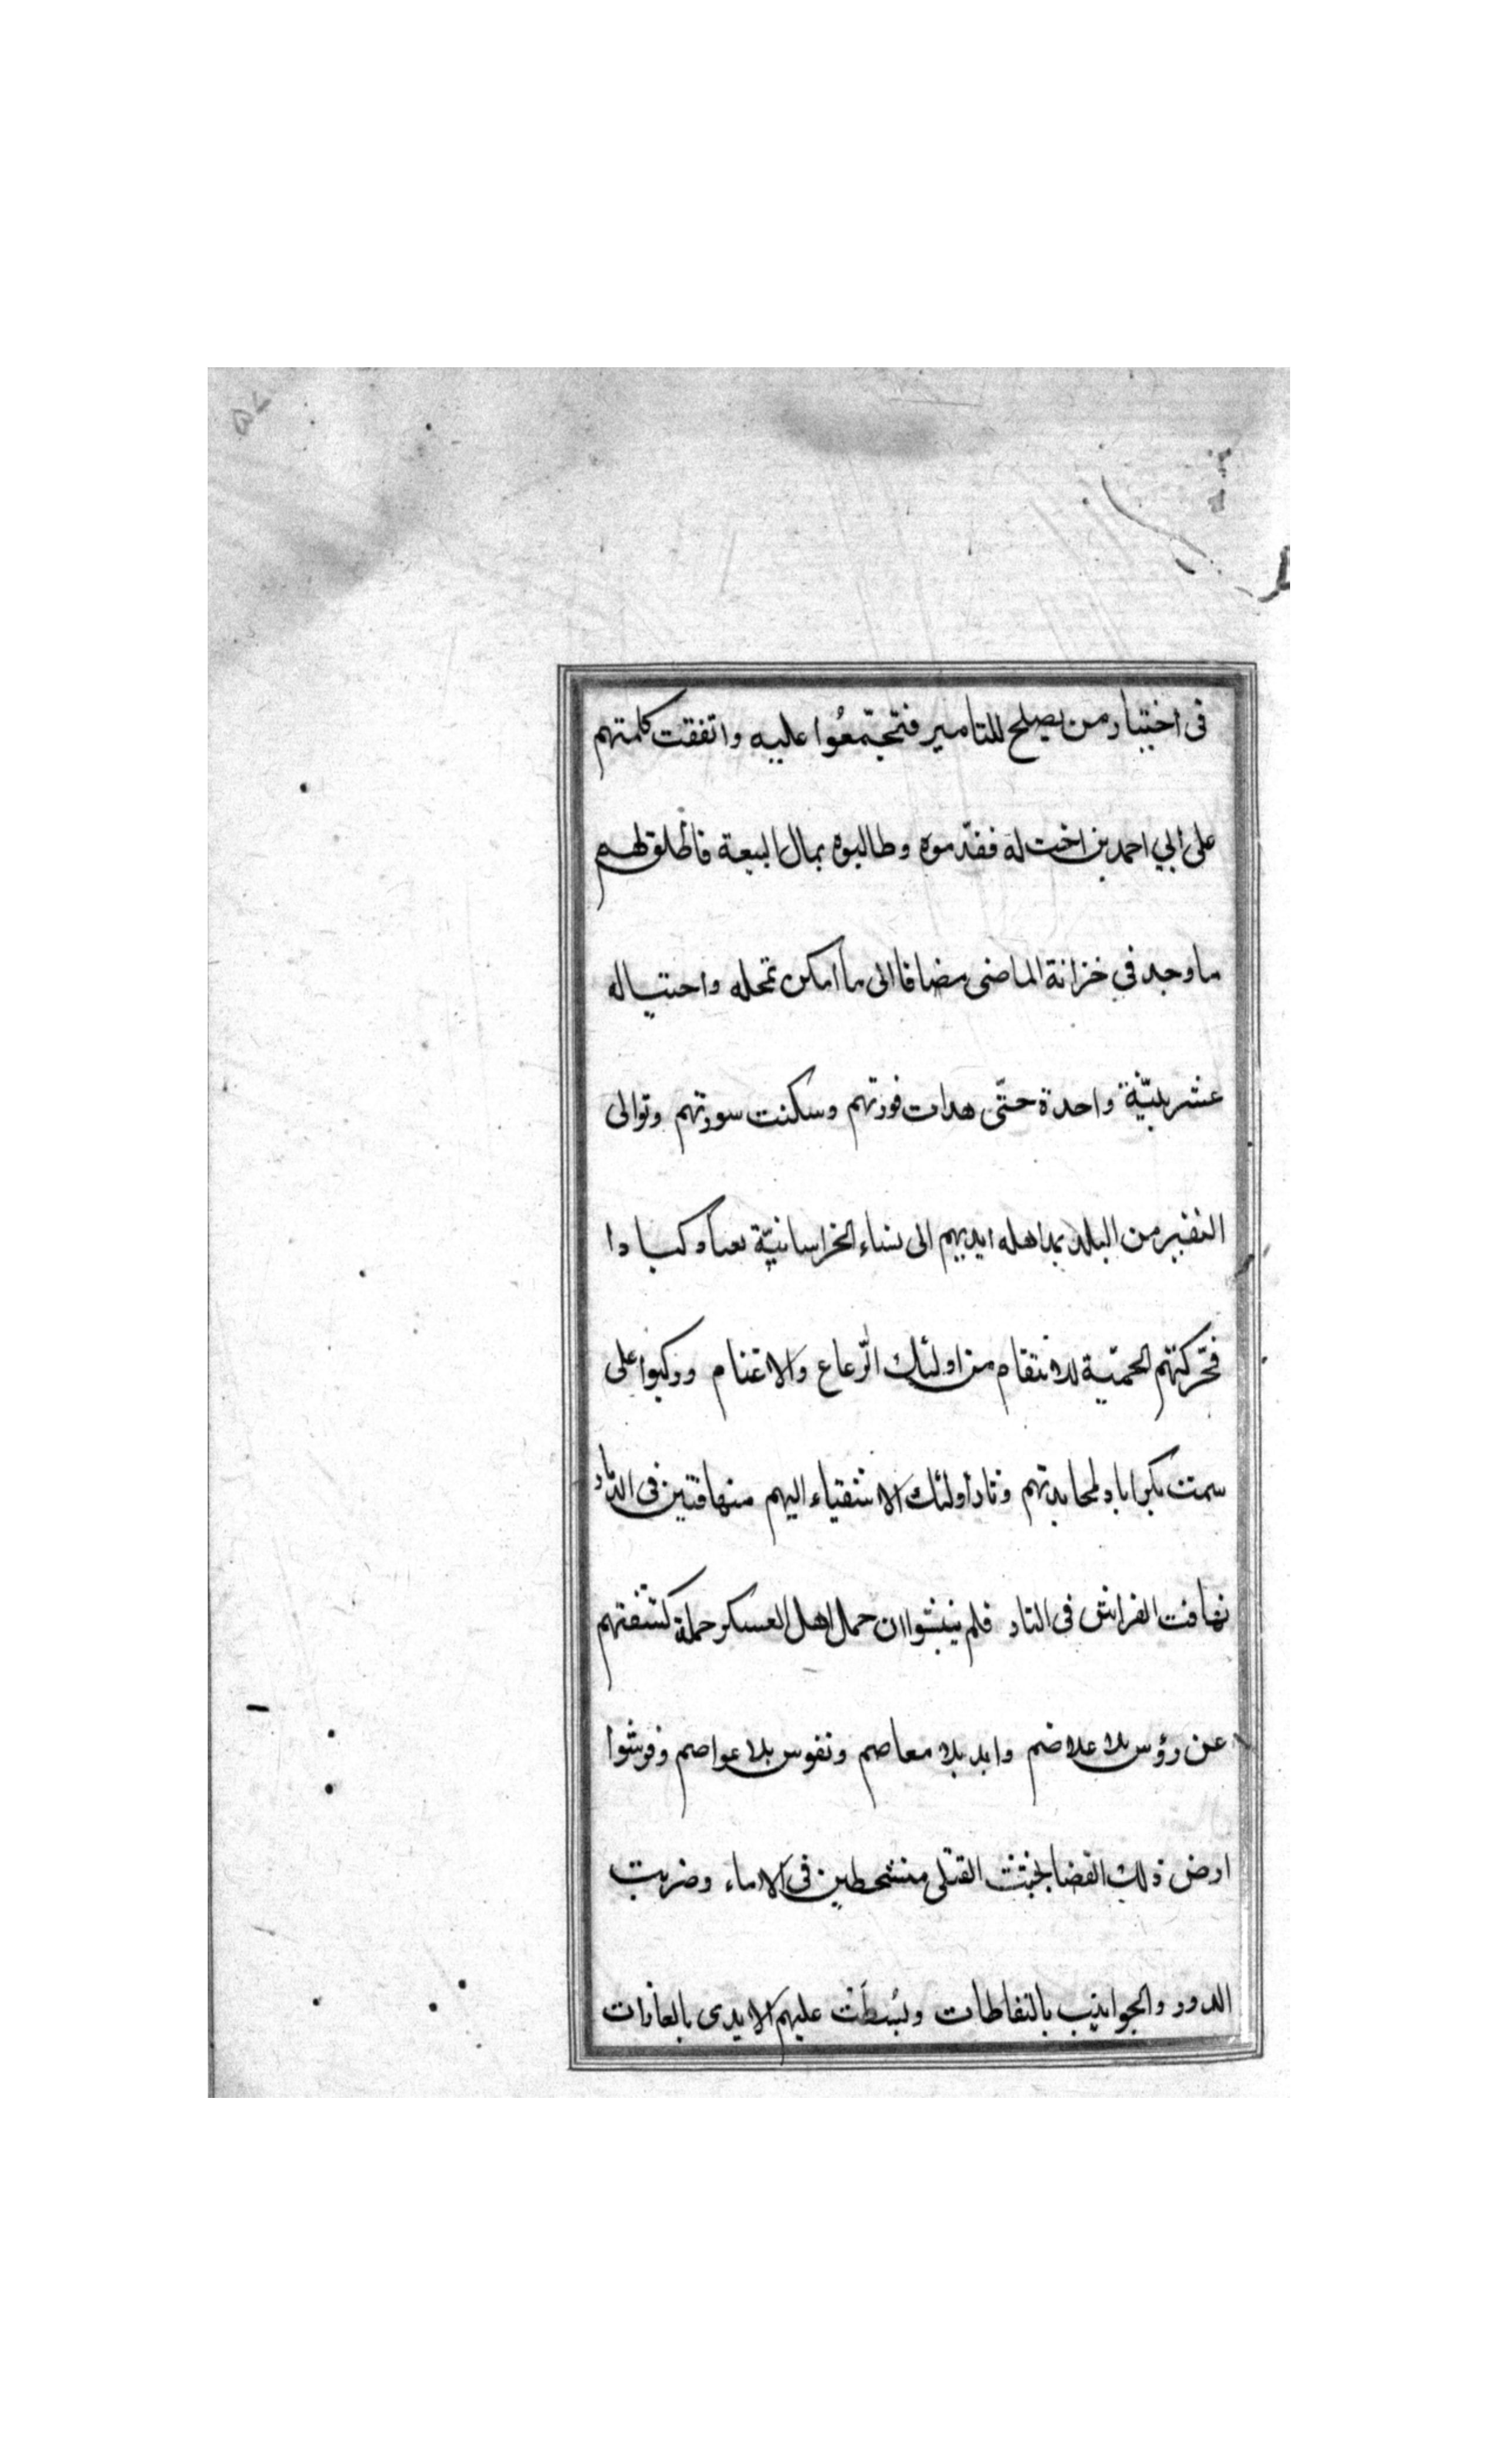 في اختيار من يصلح للتامير فتجمّعُوا عليه واتفقت كلمتهم
على أبي احمد بن اخت له فقدّموه وطالبوه بمال البيعة فأطلق لهم
ما وجد في خزانة الماضى مضافا الى ما امكن تمحله واحتياله
عشرينيّة واحدة حتّى هدات فورتهم وسكنت سورتهم وتوالى
النفير من البلد بمد اهله ايديهم الى نساء الخراسانيّة
فحّركتهم الحميّة للانتقام من اولئك الرّعاع والاغتام وركبوا على
سمت بكراباد لمحاربتهم وثار أولئك الاشقياء اليهم متهافتين في
تهافت الفراش في النار فلم ينشبوا ان حمل اهل العسكر حملة كشفتهم
عن رؤس بلا غلاصم وايد بلا معاصم ونفوس بلا عواصم وفرشوا
ارض ذلك الفضا بجثث القتلى متشحطين في الدماء وضربت
الدور والجوانيب بالنفاطات وبُسطَتْ عليهم الايدى بالغارات